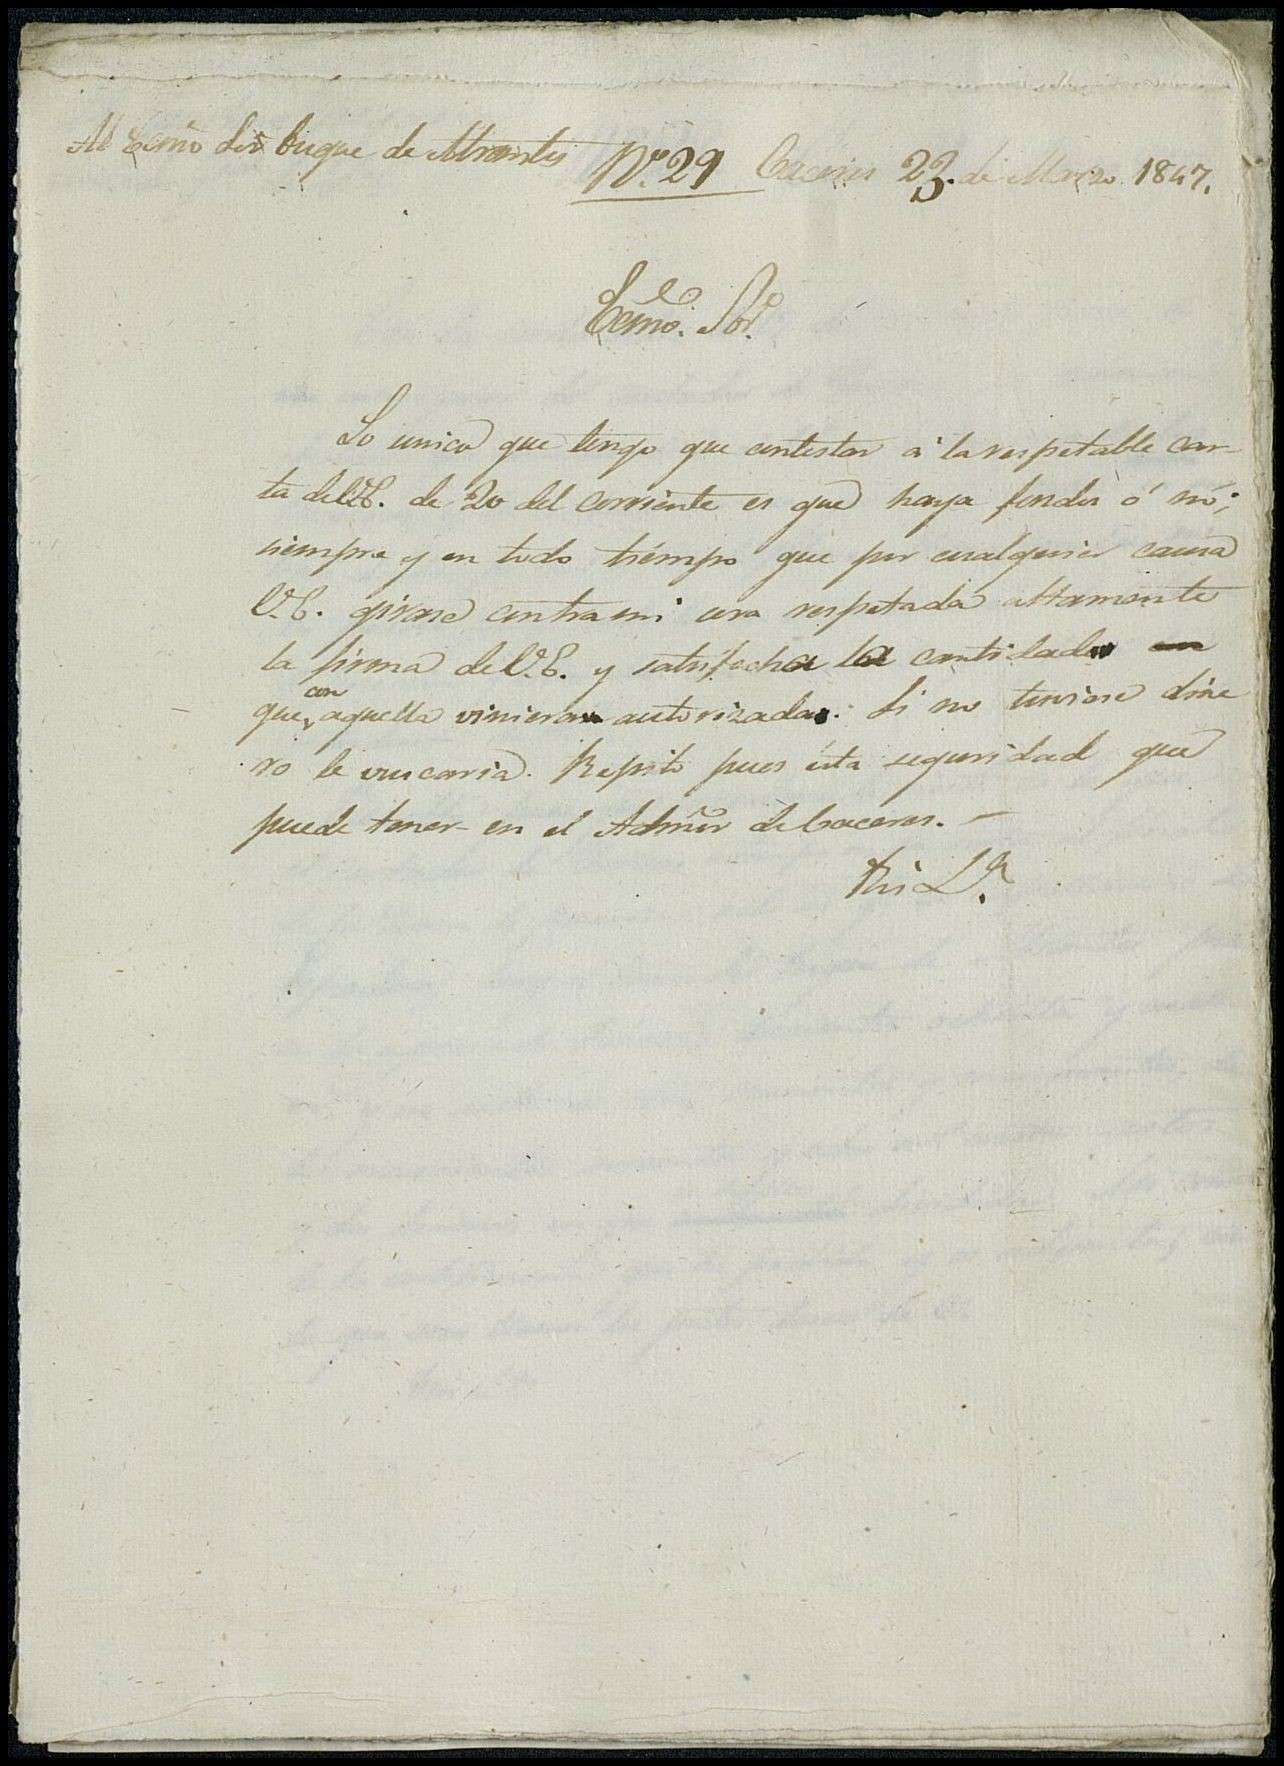 Al Ecmo Sor Duque de Abrantes Nº. 29 Caceres 23. de Marzo 1847.
Ecmo. Sor.
Lo unico que tengo que contestar á la respetable car-
ta de V.E. de 20 del corriente es que haya fondos ó nó;
siempre y en todo tiempo que por cualquier causa
V.E. girase contra mi sera respetada altamente
la firma de V.E. y satisfecha la cantidad
que con aquella viniera autorizada. Si no tuviese dine
ro le buscaria. Repito pues ésta seguridad que
puede tener en el Admor de Caceres. -